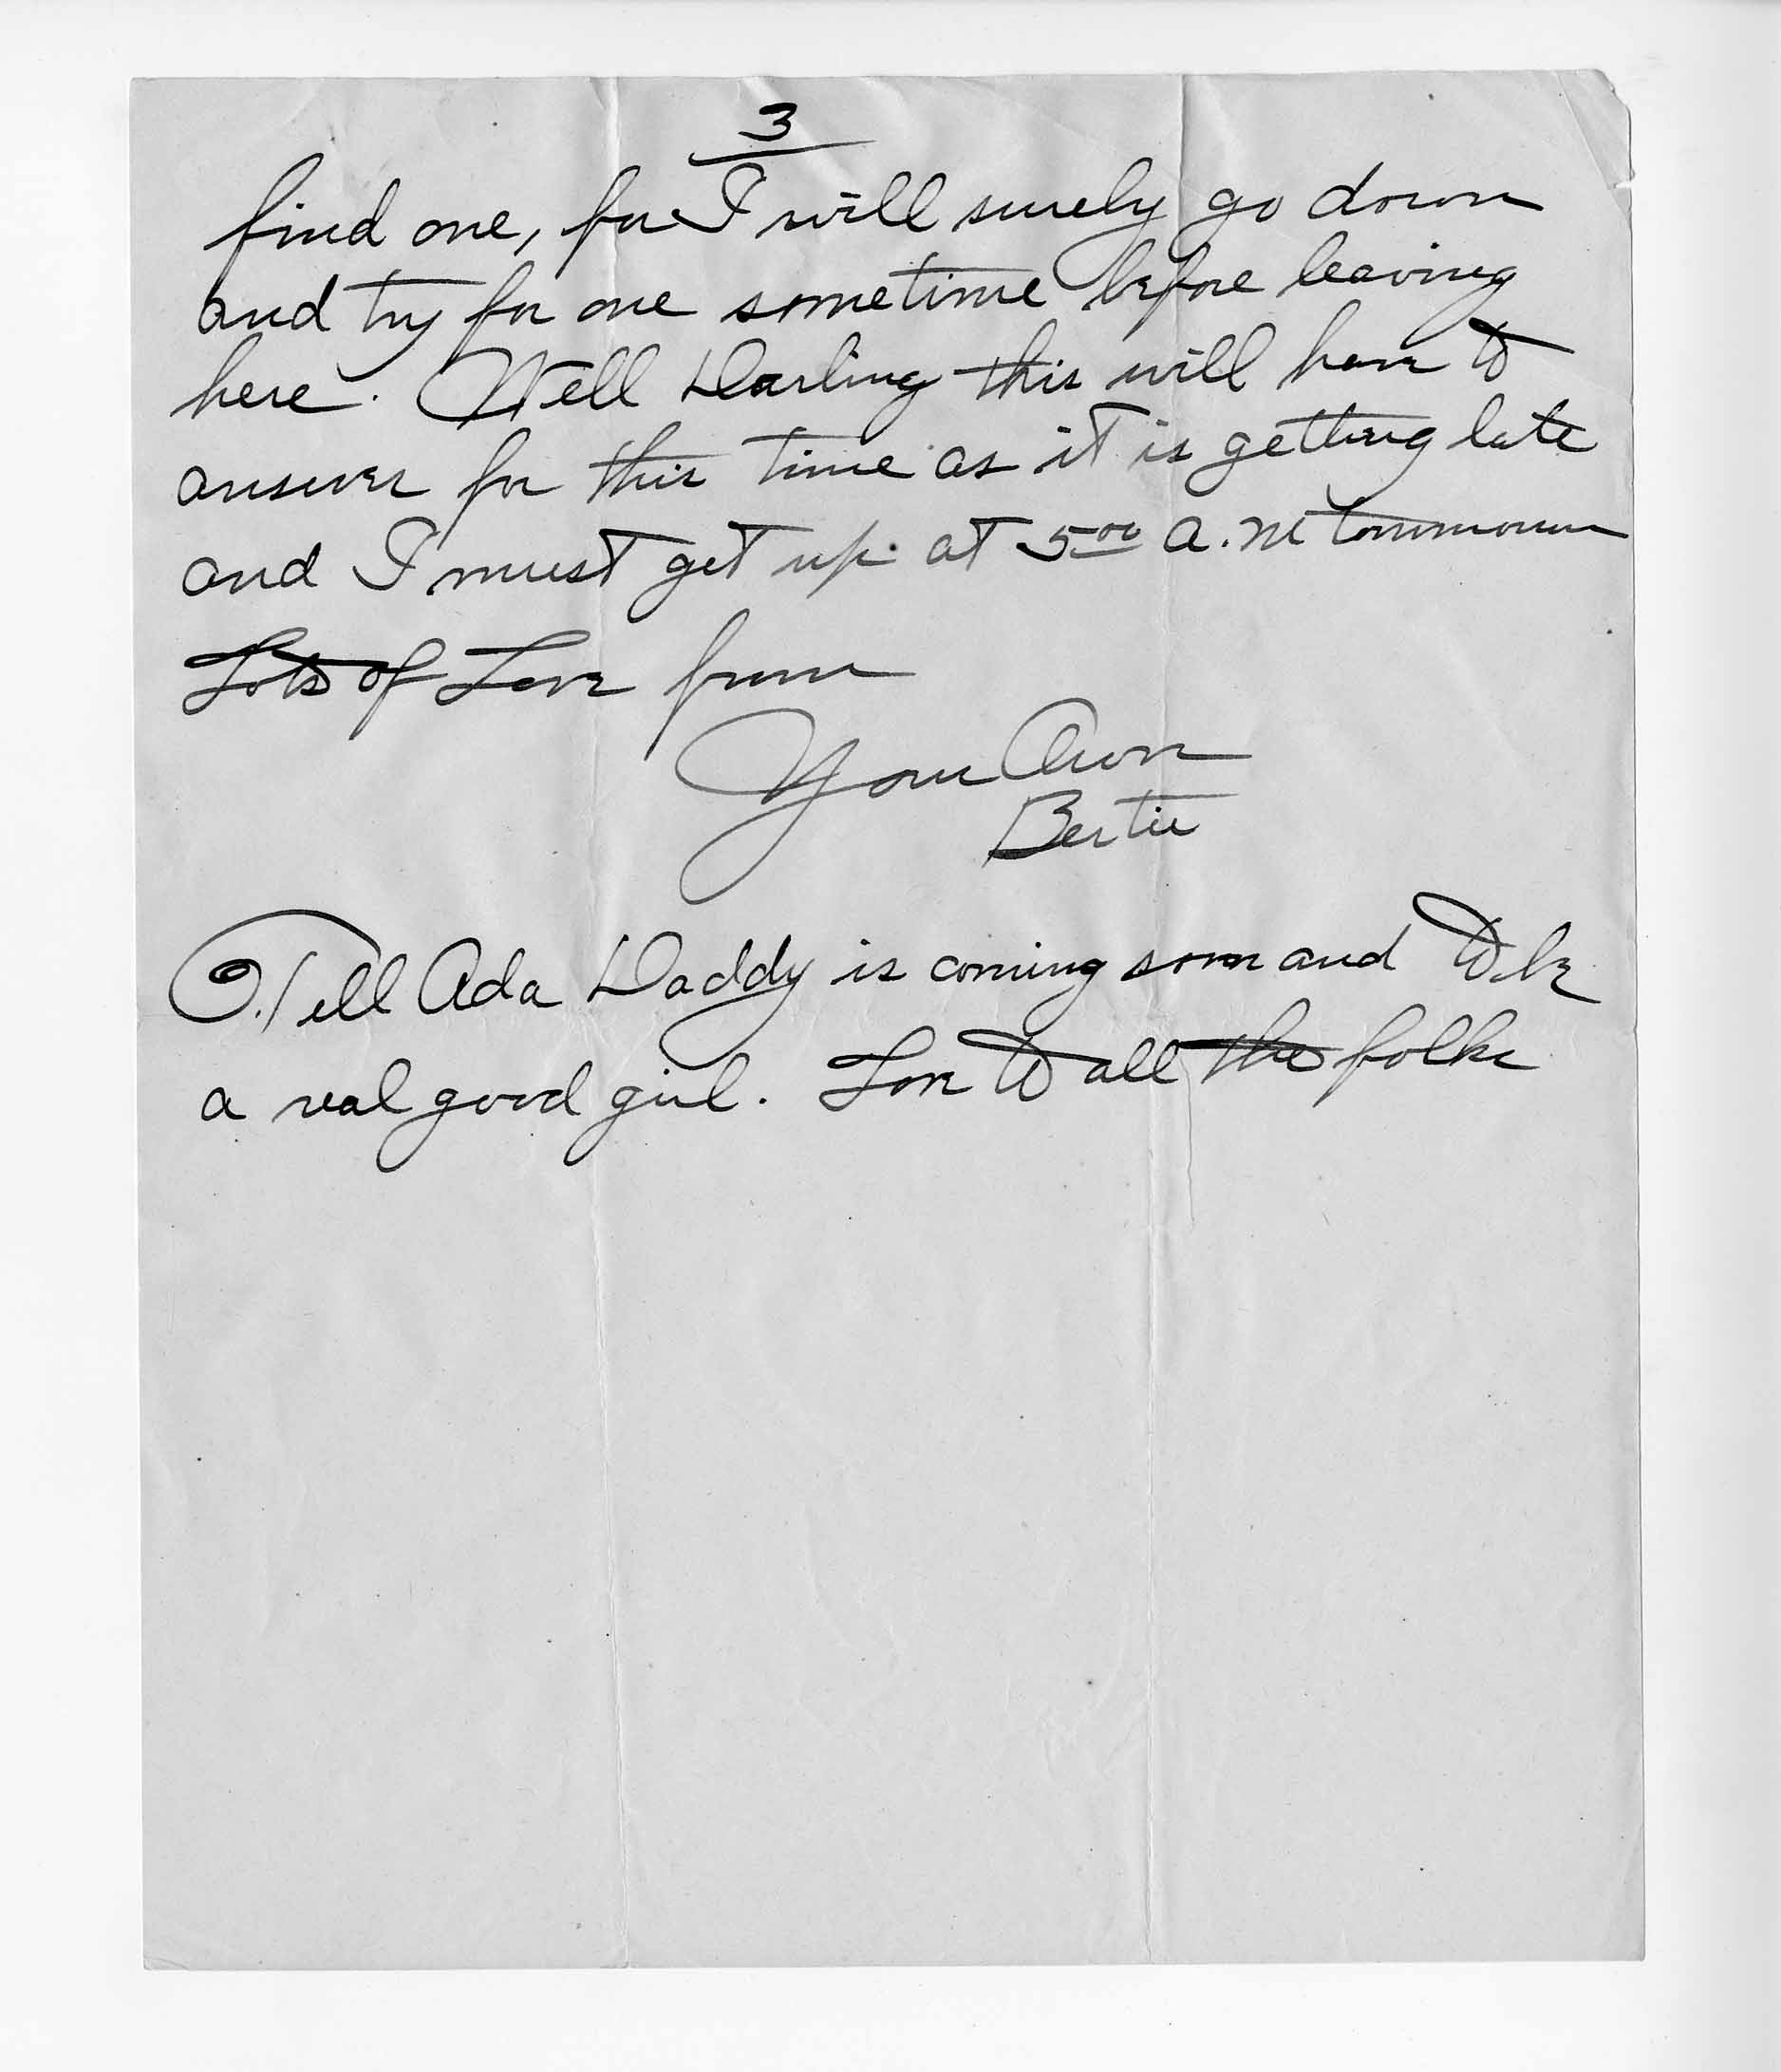 3
find one, for I will surely go down
and try for one sometime before leaving
here. Well Darling this will have to
answer for this time as it is getting late
and I must get up at 5 00 a.m tommorow
Lots of Love from
Your Own
Bertie
Tell Ada Daddy is coming soon and to be
a real good girl. Love to all the folks